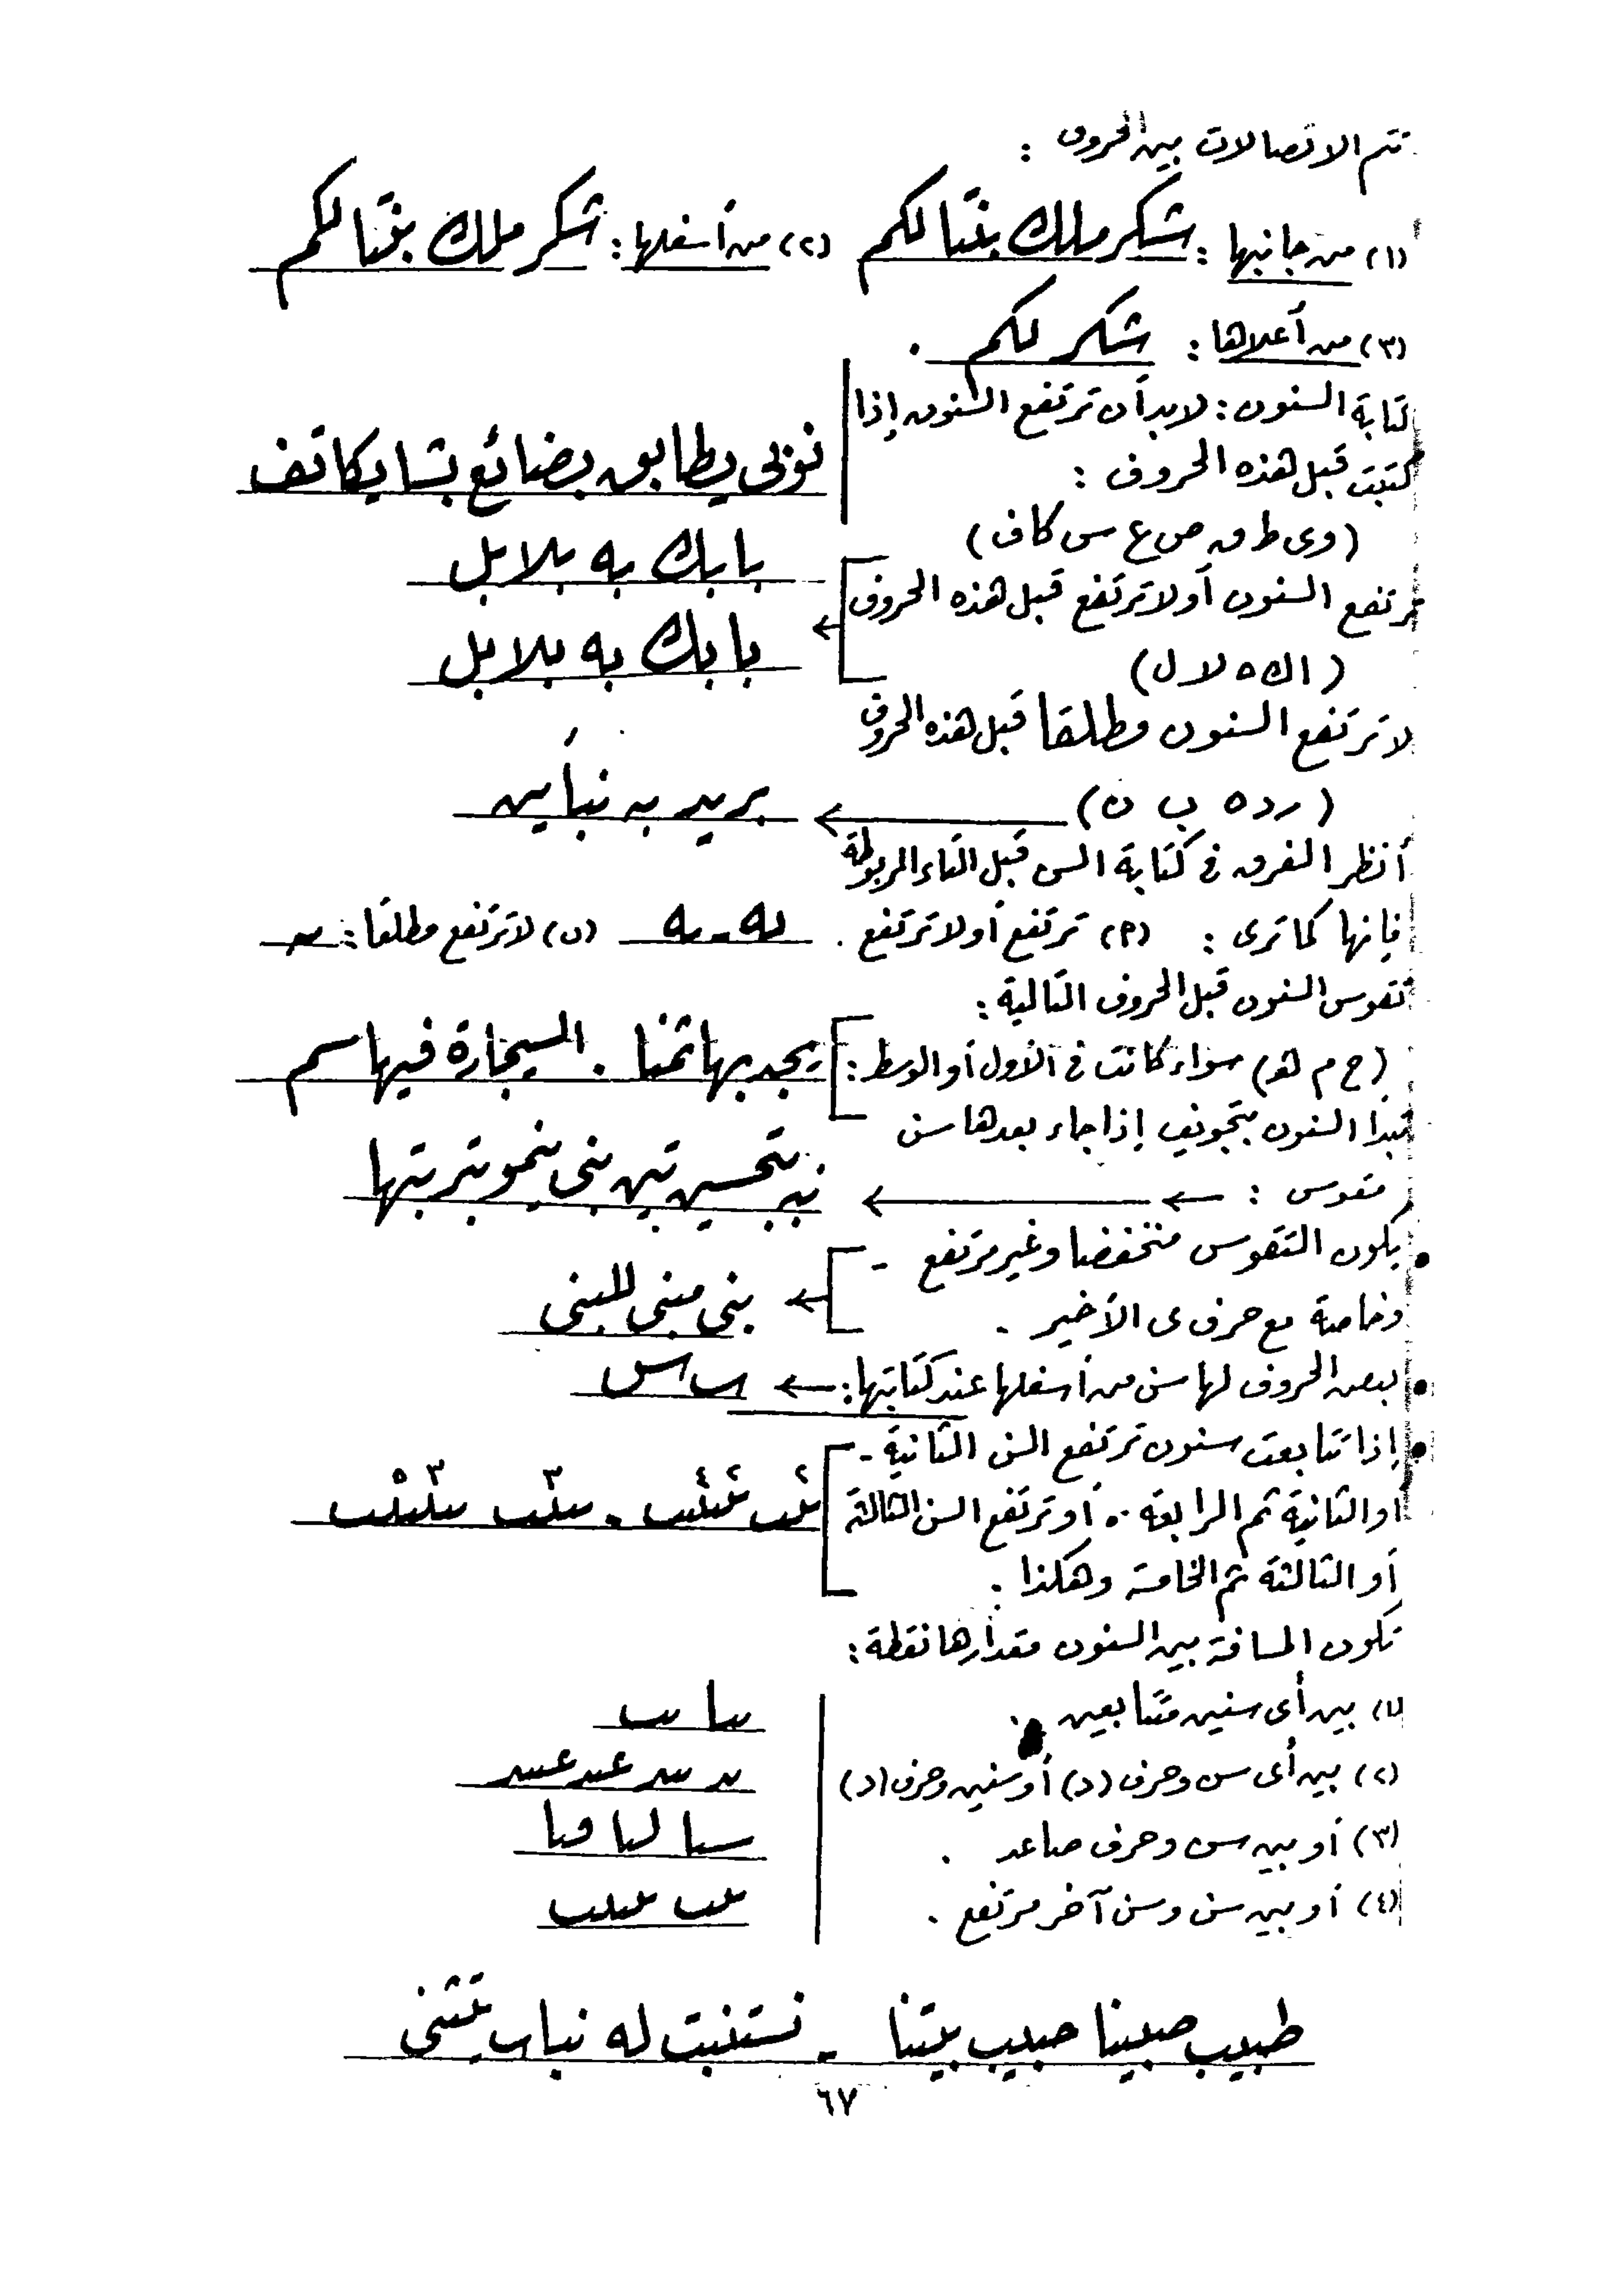 تتم الاتصالات بين الحروف :
(١) من جانبها : شكر ملك بقتالكم (٢) من أسفلها : شكر ملك بقتالكم
(٣) من أعلاها : شكر لكم .
كتابة السنون : لابد أن ترتفع السنون إذا
كتبت قبل هذه الحروف :
نوبى يطابق بضائع بشا يكاتف
(وى ط ق ص ع س كاف)
بابك به بلابل
ترتفع السنون أو لا ترتفع قبل هذه الحروف
بابك به بلابل
(اك ه لا ل)
لا ترتفع السنون مطلقا قبل هذه الحروف
(ر د ه ب ن) بريد به نبأين
أنظر الفرق فى كتابة السن قبل التاء المربوطة
فإنها كما ترى : (٢) ترتفع أو لا ترتفع . (ن) لا ترتفع مطلقا :
تقوس السنون قبل الحروف التالية :
(ح م هو) سواء كانت فى الأول أو الوسط : يجد بها ثمنا . السيجارة فيها سم
تبدأ السنون بتجويف إذا جاء بعدها سن
مقوس : نبه بتحسين تين بنى ينمو بتربتها
• يكون التقوس منخفضا وغير مرتفع -
بنى مبنى للبنى
وخاصة مع حرف ى الأخير .
• بعض الحروف لها سن من أسفلها عند كتابتها :
• إذا تتابعت سنون ترتفع السن الثانية -
٢ ٢ ٤ ٣ ٣ ٥
أو الثانية ثم الرابعة .. أو ترتفع السن الثالثة
أو الثالثة ثم الخامسة وهكذا .
تكون المسافة بين السنون مقدارها نقطة :
(١) بين أى سنين متتابعين .
(٢) بين أى سن وحرف (د) أو سنين وحرف (د)
(٣) أو بين سن وحرف صاعد .
(٤) أو بين سن وسن آخر مرتفع .
طبيب صبينا حبيب بيتنا - نستنبت له نبات يتثنى
٦٧